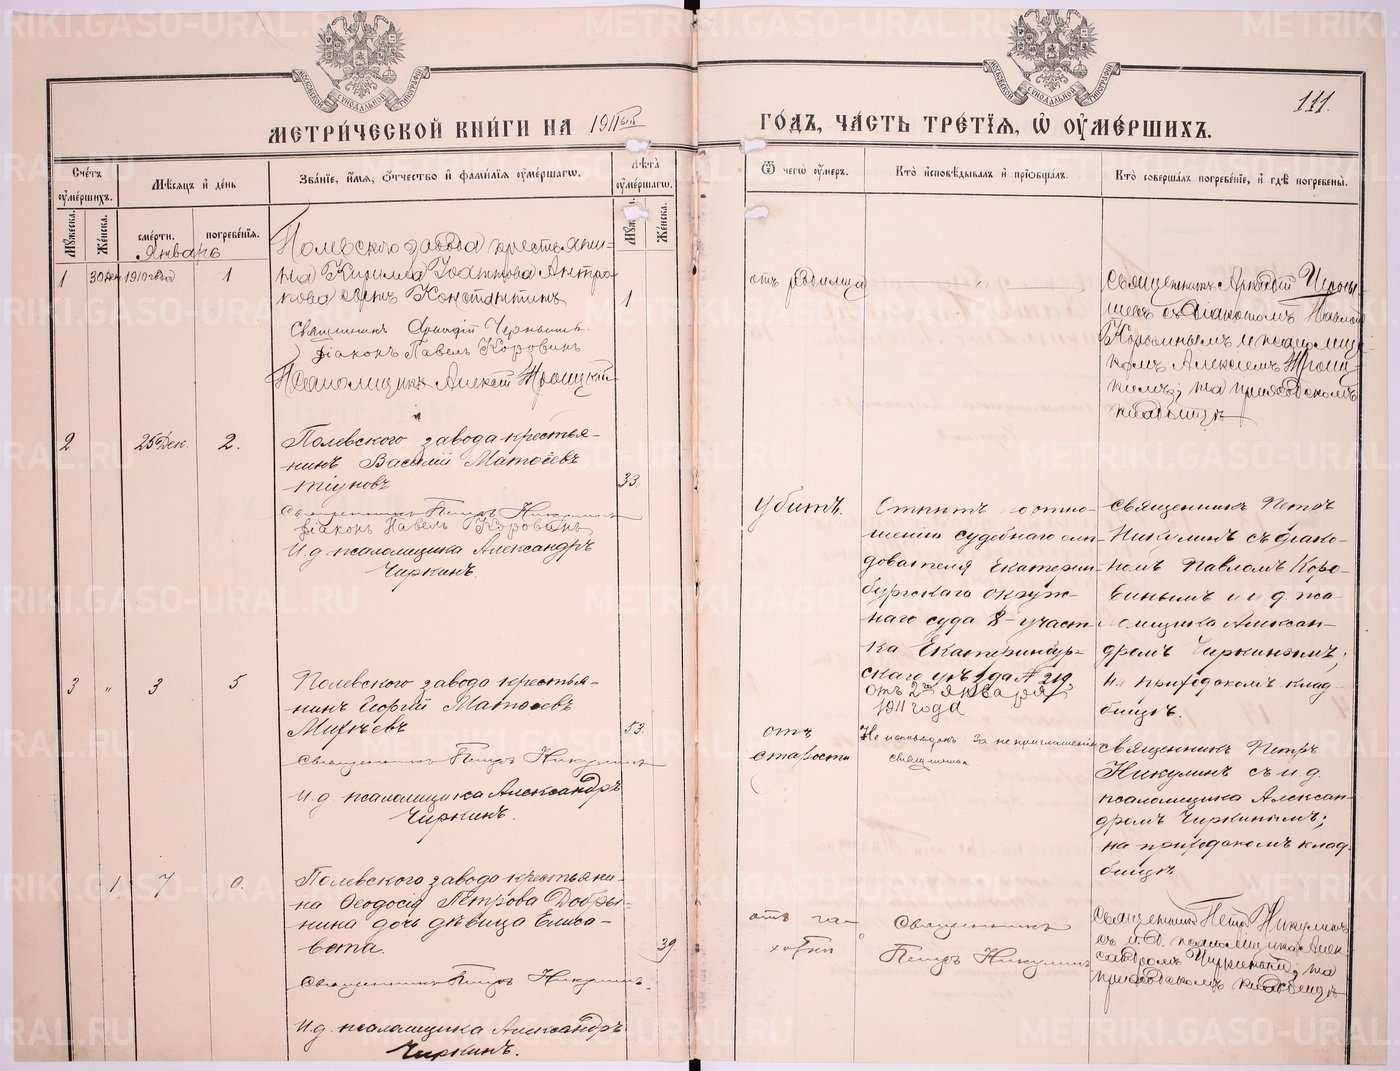 МЕТРИ́ЧЕСКОЙ КНИ́ГИ НА 1911ый ГО́ДЪ, ЧА́СТЬ ТРЕ́ТІЯ, Ѡ ОУ҆МЕ́РШИХЪ.
111.
Сче́тъ оу҆ме́ршихъ.
Му́жеска.
Же́нска.
Мѣ́сяцъ и҆ де́нь
сме́рти.
погребе́нія.
Зва́ніе, и҆́мя, ѻ҆́тчество и҆ фами́лія оу҆ме́ршагѡ.
Лѣ́та оу҆ме́ршагѡ.
Му́жеска.
Же́нска.
Ѿ чегѡ̀ оу҆́меръ.
Кто̀ и҆сповѣ́дывалъ и҆ прїѡбща́лъ.
Кто̀ соверша́лъ погребе́ніе, и҆ гдѣ̀ погребены̀.
Январь
1 30 дек 1910 года 1
Полевского завода крестьяни-
на Кирилла Іоаннова Антро-
пова сынъ Константинъ
1
Священникъ Аркадій Чернышевъ.
Діаконъ Павелъ Коровинъ
Псаломщикъ Алексій Троицкій
отъ родимца
Священникъ Аркадій Черны-
шевъ съ діакономъ Павломъ
Коровинымъ и псаломщи-
комъ Алексіемъ Троиц-
кимъ; на приходскомъ
кладбищѣ
2 25 Дек. 2.
Полевского завода крестья-
нинъ Василій Матѳеевъ
Тіуновъ
33.
Священникъ Петръ Никулинъ
Діаконъ Павелъ Коровинъ
И.д. псаломщика Александръ
Чиркинъ.
убитъ.
отно-
шенію судебнаго слѣ-
дователя Екатерин-
бургскаго окруж-
наго суда 8-участ-
ка Екатеринбур-
скаго уѣзда № 219
отъ 2го января
1911 года
Священникъ Петръ
Никулинъ съ діако-
номъ Павломъ Коро-
винымъ и и.д. пса-
ломщика Алексан-
дромъ Чиркинымъ;
на приходскомъ клад-
бищѣ.
3 " 3 5
Полевского завода крестья-
нинъ Георгій Матѳеевъ
53.
Священникъ Петръ Никулинъ
И.д. псаломщика Александръ
Чиркинъ.
отъ
старости
Не исповѣданъ за не приглашеніемъ
священника.
Священникъ Петръ
Никулинъ съ и.д.
псаломщика Алексан-
дромъ Чиркинымъ;
на приходскомъ клад-
бищѣ.
1. 7 9.
Полевского завода крестьяни-
на Ѳеодосія Петрова Добры-
нина дочь дѣвица Елиса-
вета.
39.
Священникъ Петръ Никулинъ.
И.д. псаломщика Александръ
Чиркинъ.
отъ ча-
хотки
Священникъ
Петръ Никулинъ
Священникъ Петръ Никулинъ
съ и.д. псаломщика Алек-
сандромъ Чиркинымъ; на
приходскомъ кладбищѣ